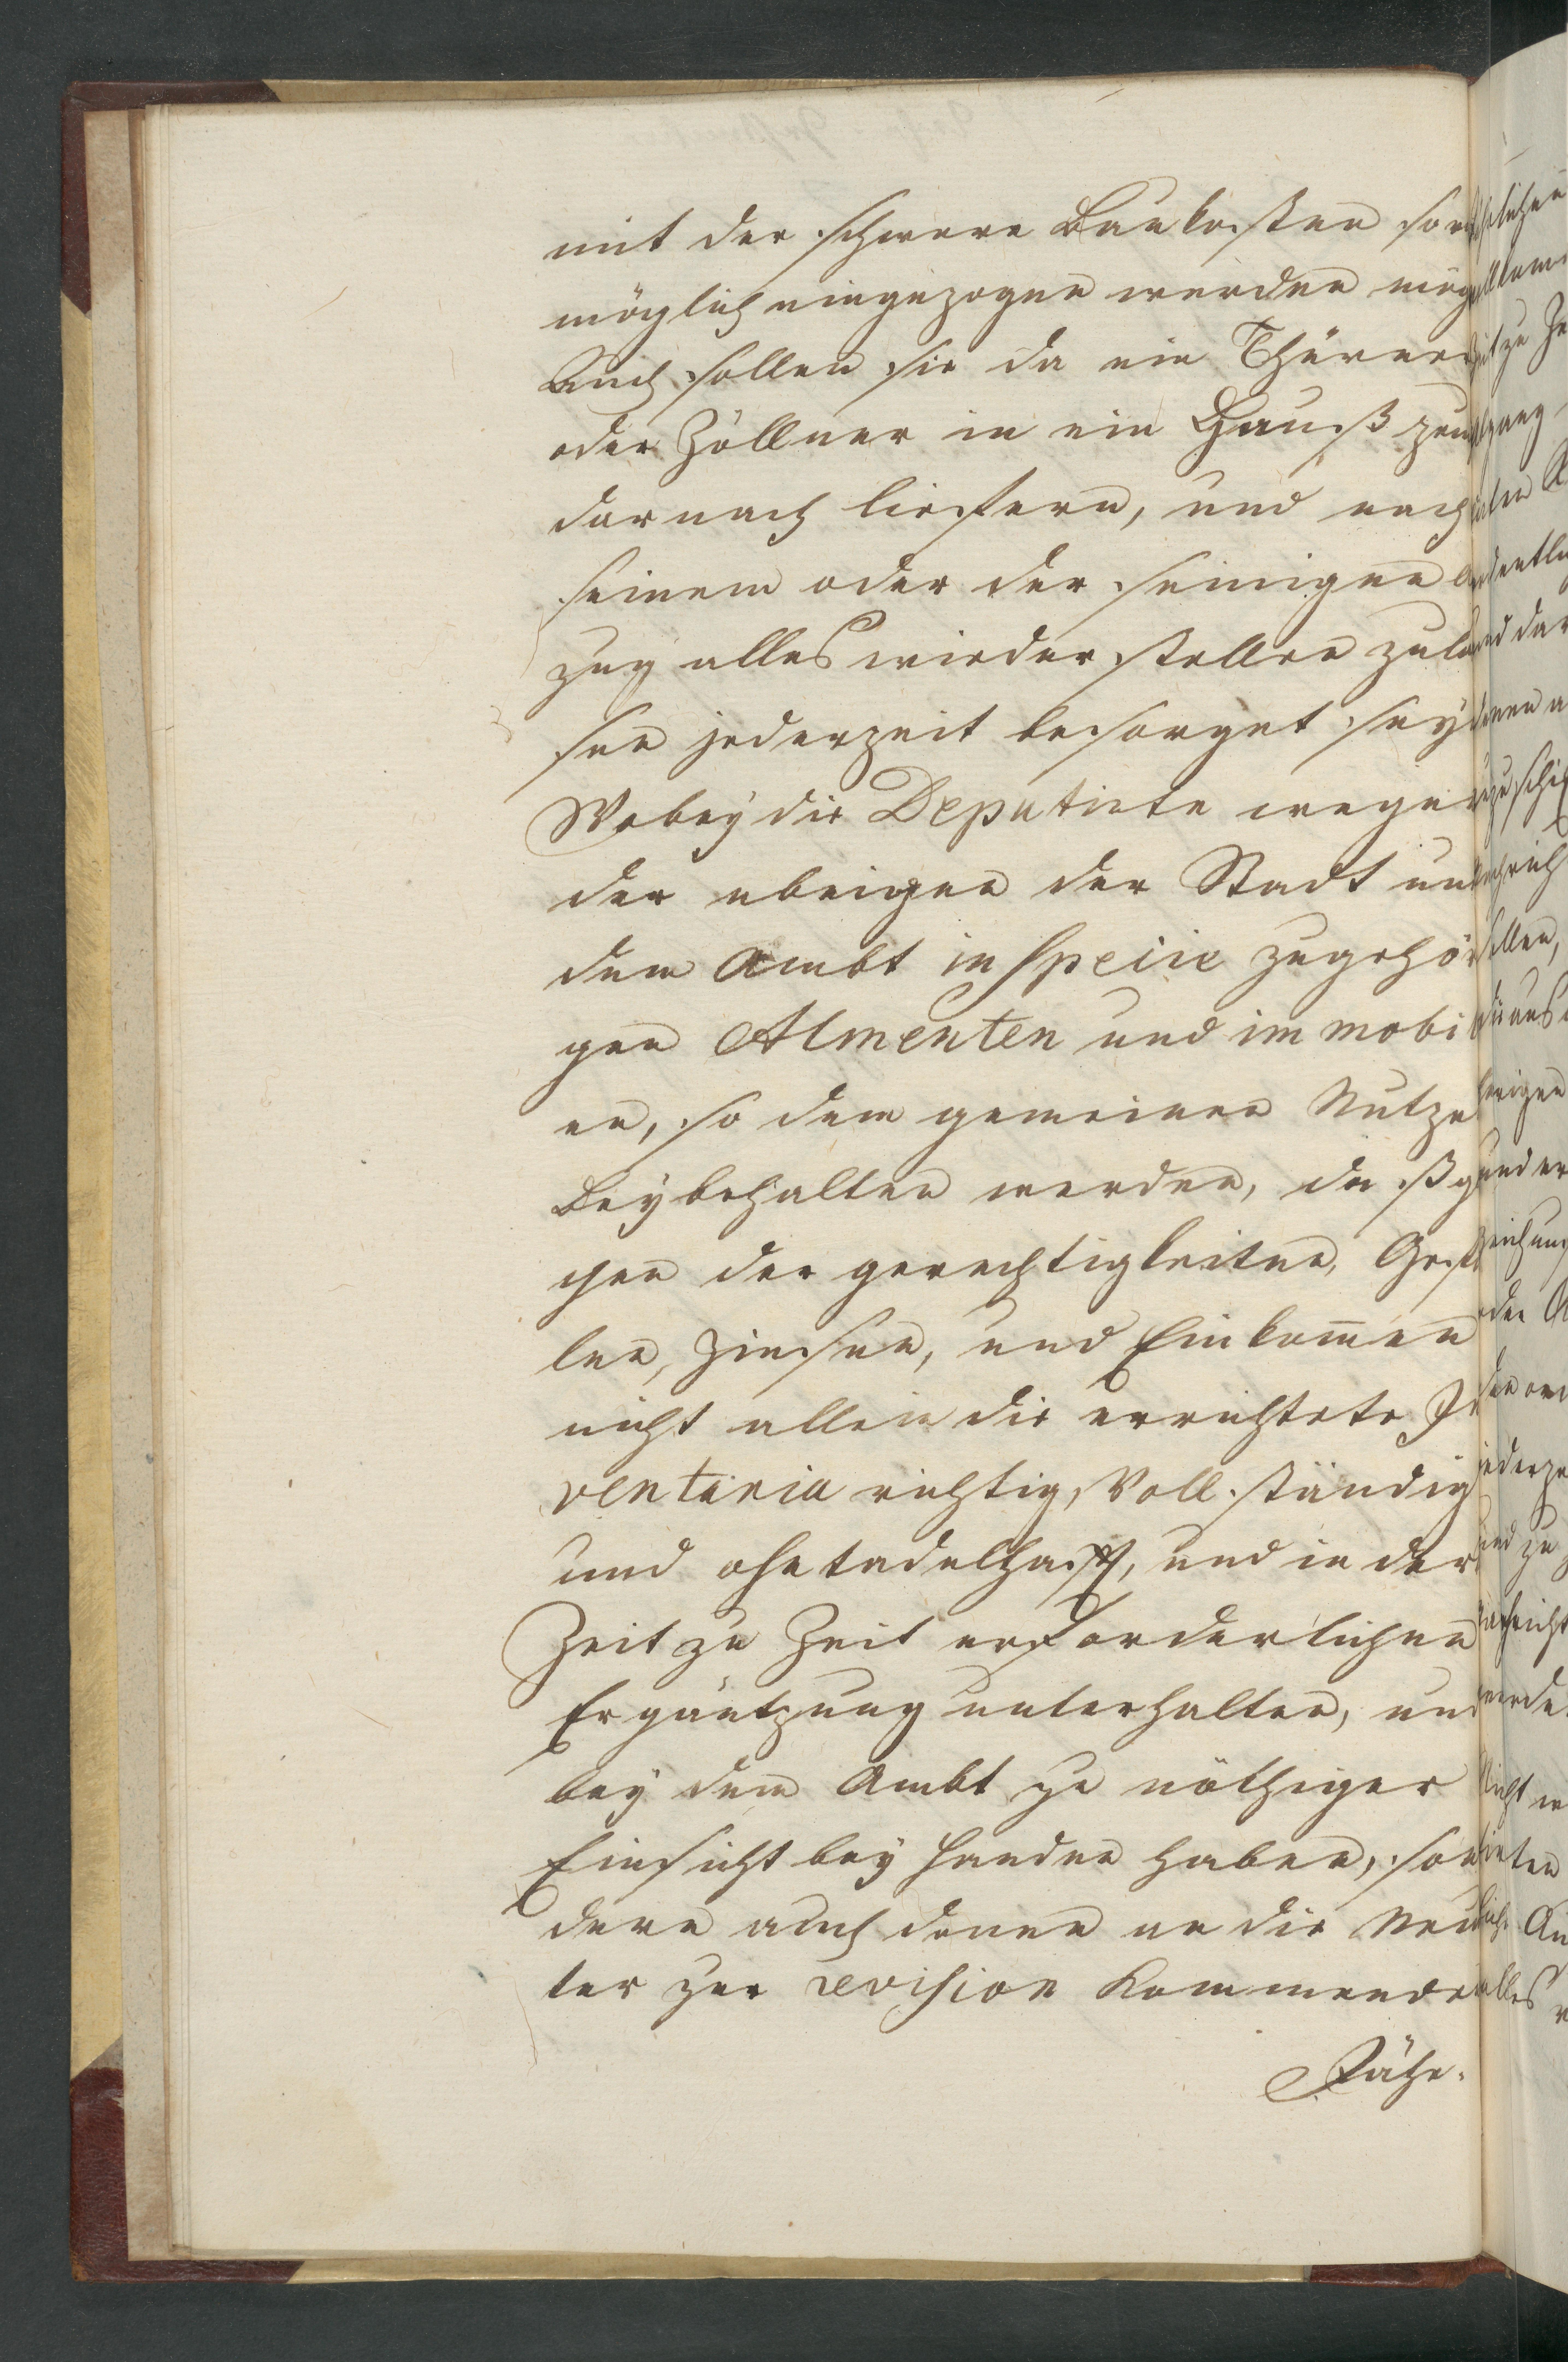 mit der schwere Baukosten so
möglich eingezogen werden mög
Auch sollen sie da ein Thürner
oder Zöllner in ein Hauß zeucht
darnach liefern, und nach
seinem oder der seinigen
zug alles wieder stellen zula
sen jederzeit besorget sey
Wobey die Deputirte wegen
der übrigen der Stadt und
dem Ambt in Specie zugehöri
gen Almenten und immobi
en, so dem gemeinen Nutzen
beybehalten werden, daß
chen der gerechtigkeiten, Gefä
len, Zinsen, und Einkom̅en
nicht allein die errichtete In
ventaria richtig, Vollständig
und ohntadelhafft, und in der
Zeit zu Zeit erforderlichen
Ergäntzung unterhalten, und
bey dem Ambt zu nöthiger
Einsicht bey handen haben, son
dern auch denen an die
ter zur revision kommenden
Jähr-